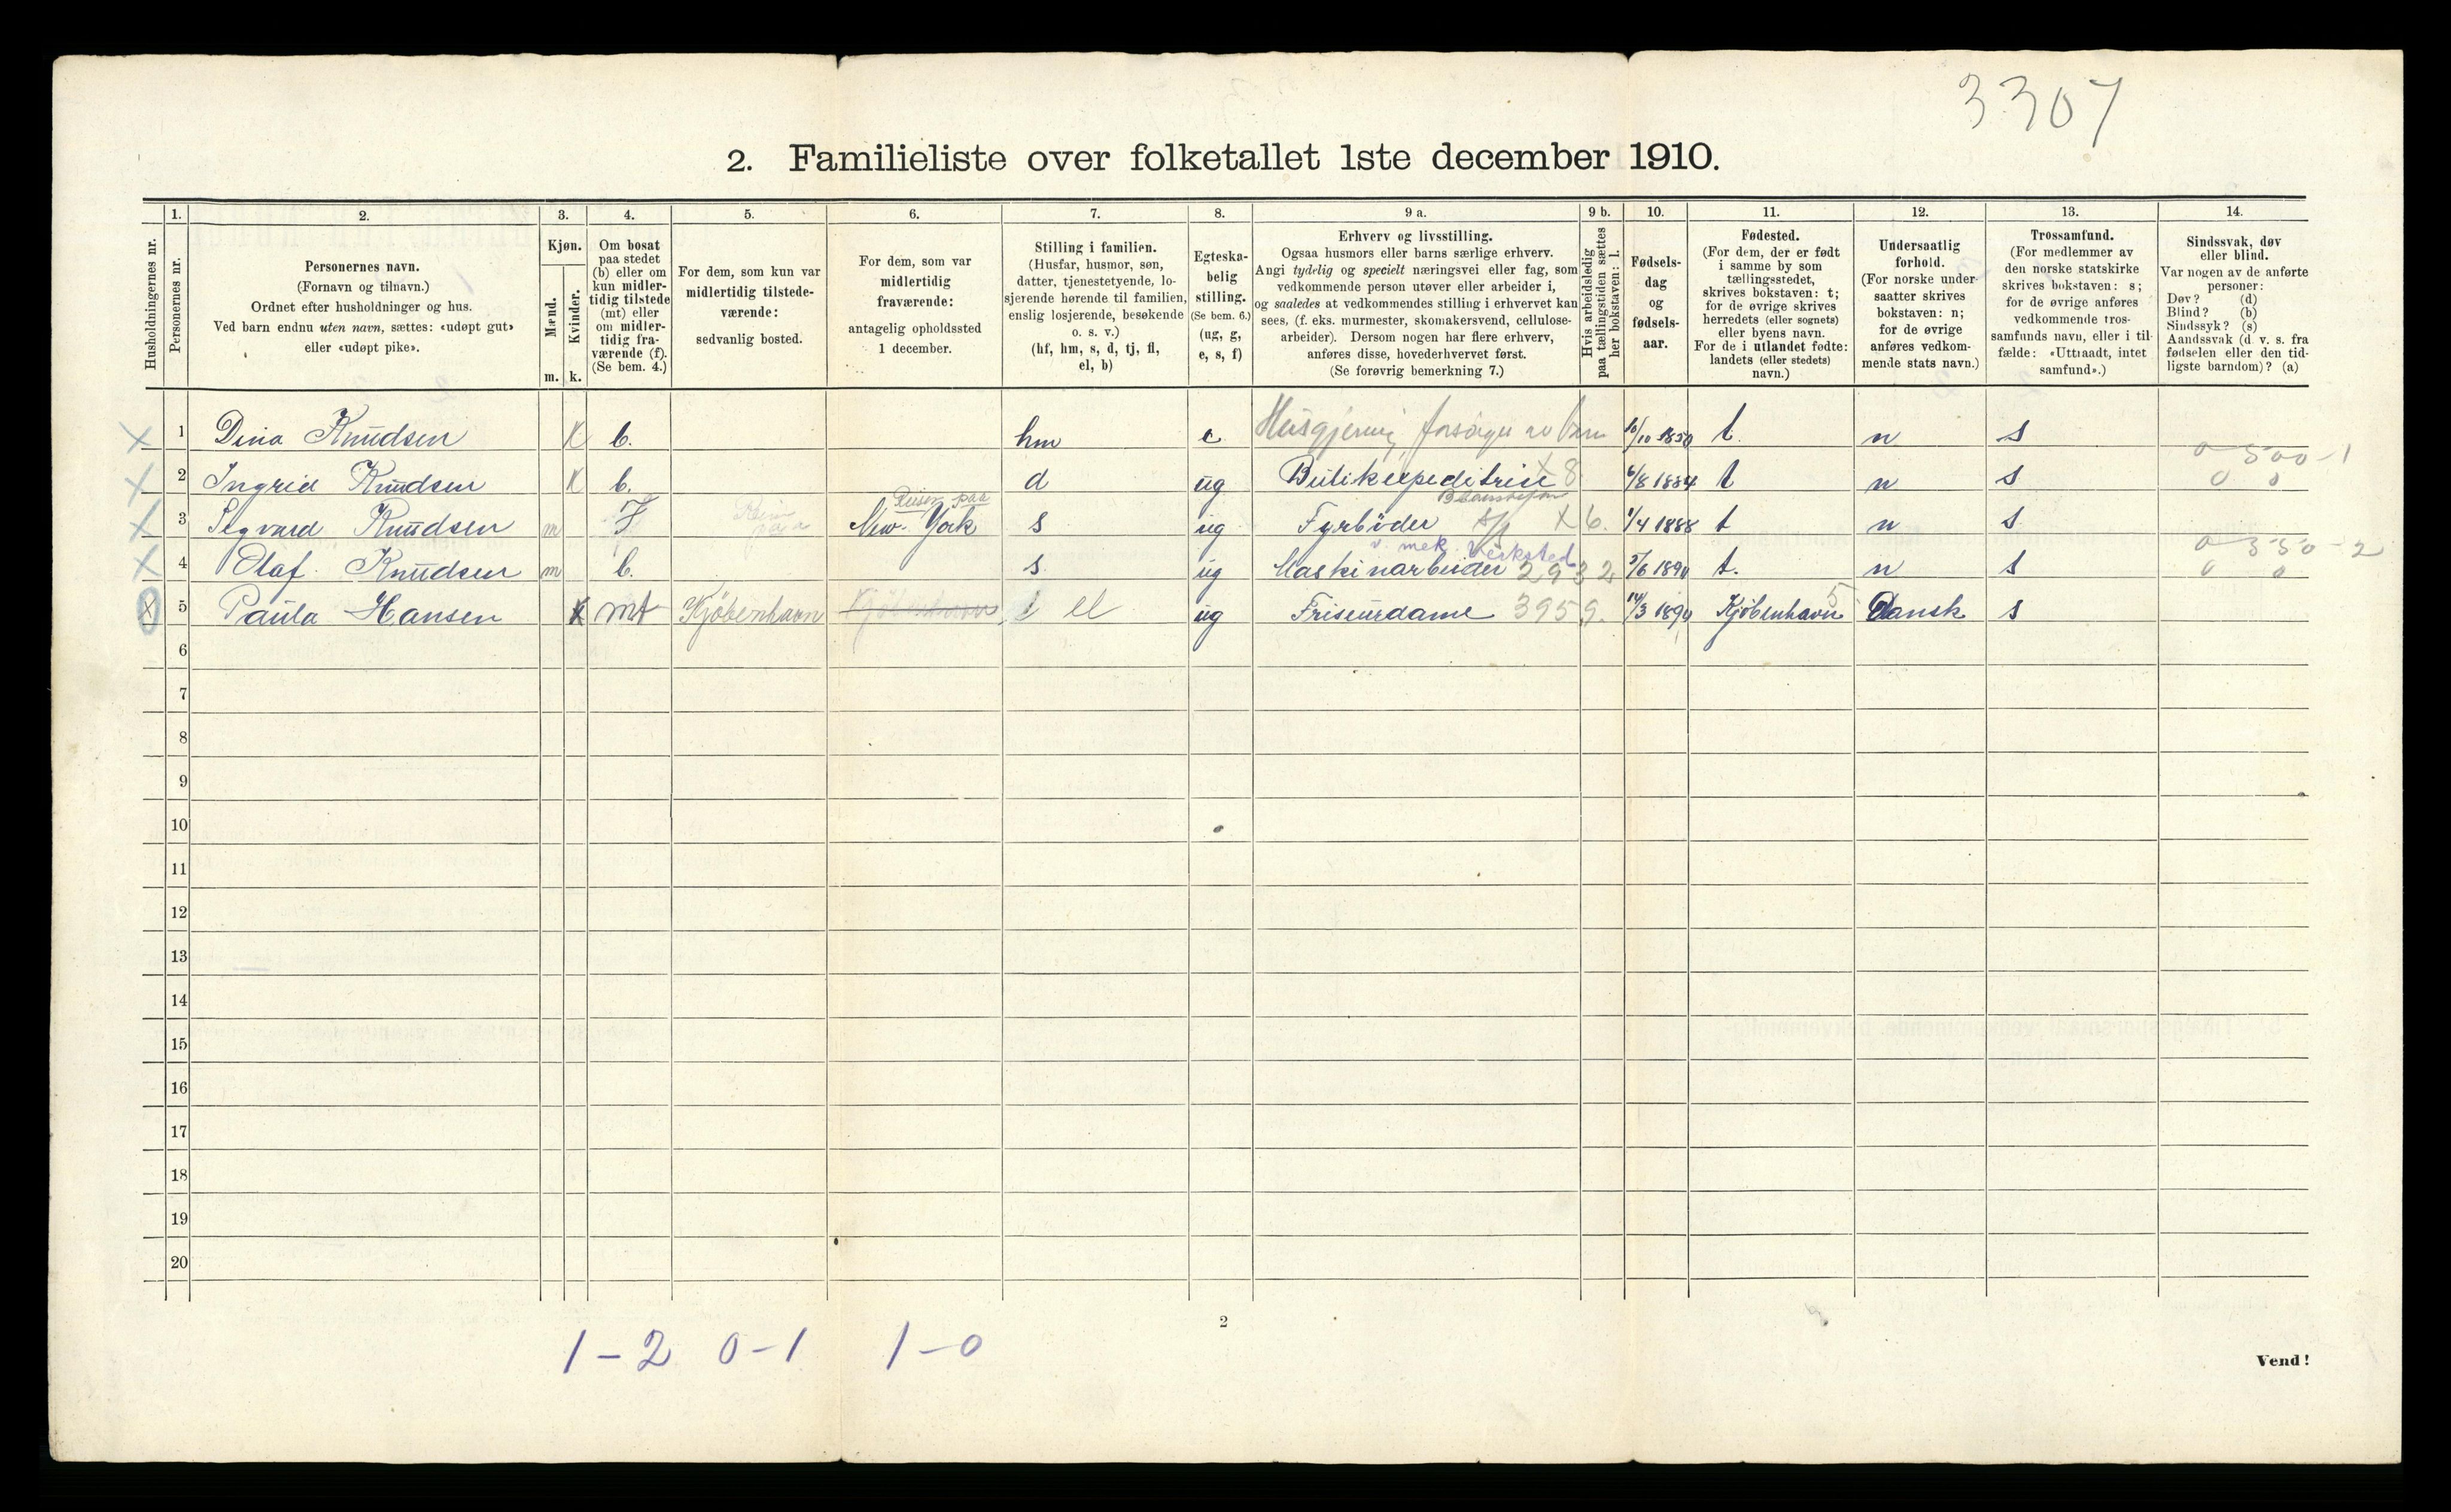 3307
2. Familieliste over folketallet 1ste december 1910.
Husholdningernes nr.
1.
Personernes nr.
2.
Personernes navn.
(Fornavn og tilnavn.)
Ordnet efter husholdninger og hus.
Ved barn endnu uten navn, sættes: «udøpt gut»
eller «udøpt pike».
3.
Kjøn.
Mænd.
Kvinder.
m. k.
4.
Om bosat
paa stedet
(b) eller om
kun midler-
tidig tilstede
(mt) eller
om midler-
tidig fra-
værende (f).
(Se bem. 4.)
5.
For dem, som kun var
midlertidig tilstede-
værende:
sedvanlig bosted.
6.
For dem, som var
midlertidig
fraværende:
antagelig opholdssted
1 december.
7.
Stilling i familien.
(Husfar, husmor, søn,
datter, tjenestetyende, lo-
sjerende hørende til familien,
enslig losjerende, besøkende
o. s. v.)
(hf, hm, s, d, tj, fl,
el, b)
8.
Egteska-
belig
stilling.
(Se bem. 6.)
(ug, g,
e, s, f)
9 a.
Erhverv og livsstilling.
Ogsaa husmors eller barns særlige erhverv.
Angi tydelig og specielt næringsvei eller fag, som
vedkommende person utøver eller arbeider i,
og saaledes at vedkommendes stilling i erhvervet kan
sees, (f. eks. murmester, skomakersvend, cellulose-
arbeider). Dersom nogen har flere erhverv,
anføres disse, hovederhvervet først.
(Se forøvrig bemerkning 7.)
9 b.
Hvis arbeidsledig
paa tællingstiden sættes
her bokstaven: l.
10.
Fødsels-
dag
og
fødsels-
aar.
11.
Fødested.
(For dem, der er født
i samme by som
tællingsstedet,
skrives bokstaven: t;
for de øvrige skrives
herredets (eller sognets)
eller byens navn.
For de i utlandet fødte:
landets (eller stedets)
navn.)
12.
Undersaatlig
forhold.
(For norske under-
saatter skrives
bokstaven: n;
for de øvrige
anføres vedkom-
mende stats navn.)
13.
Trossamfund.
(For medlemmer av
den norske statskirke
skrives bokstaven: s;
for de øvrige anføres
vedkommende tros-
samfunds navn, eller i til-
fælde: «Uttraadt, intet
samfund».)
14.
Sindssvak, døv
eller blind.
Var nogen av de anførte
personer:
Døv? (d)
Blind? (b)
Sindssyk? (s)
Aandssvak (d v. s. fra
fødselen eller den tid-
ligste barndom)? (a)
X 1 Dina Knudsen K b. hm e Husgjerning forsørges av barn 10/10 1850 t. n s
0 500-1
X 2 Ingrid Knudsen K b. d ug Butikexpeditrise X 8 6/8 1884 t n s 0 0
Reiser paa
X 3 Sigvard Knudsen m f New-York s ug Fyrbøder X 6. 1/4 1888 t n s
v. mek. Verksted 0 350-2
X 4 Olaf Knudsen m b. s. ug Maskinarbeider 2932 5/6 1890 t. n s 0 0
X 5 Paula Hansen K mt Kjøbenhavn Kjøbenhavn el ug Friseurdame 3959. 14/3 1890 Kjøbenhavn 5 Dansk s
6
7
8
9
10
11
12
13
14
15
16
17
18
19
20
2
1-2 0-1 1-0
Vend!